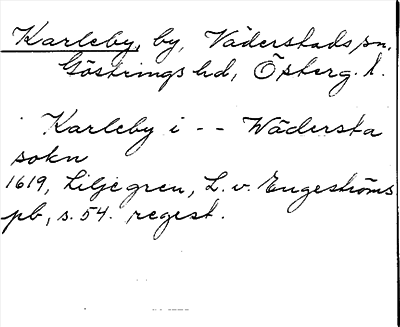 Karleby, by, Väderstads sn,
Göstrings hd, Östergl.
Karleby i -- Wädersta
sokn
1619, Liljegren, L. v. Engeströms
pb, s. 54. regest.